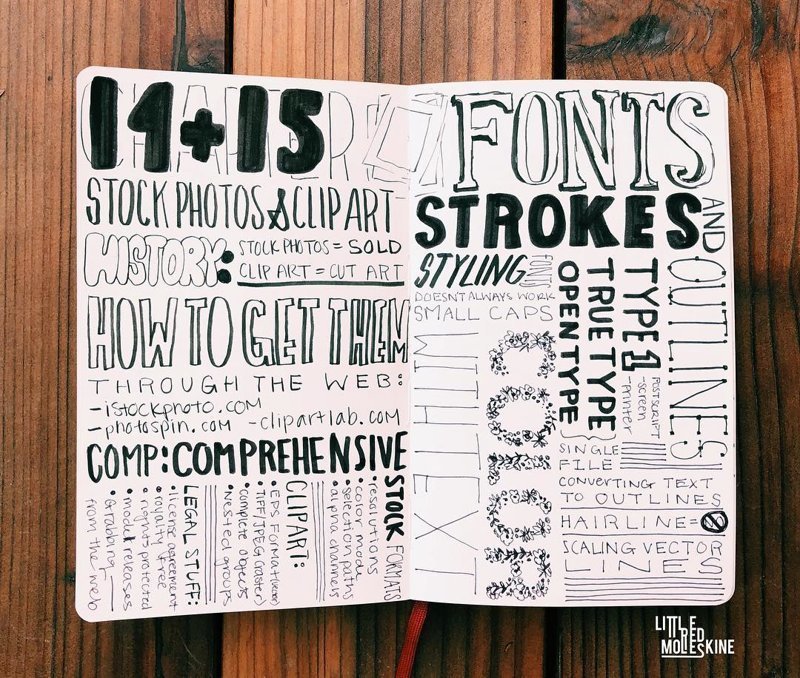 CHAPTER
14+15
STOCK PHOTOS & CLIP ART
HISTORY:
STOCK PHOTOS = SOLD
CLIP ART = CUT ART
HOW TO GET THEM
THROUGH THE WEB:
-istockphoto.com
-photospin.com -clipartlab.com
COMP: COMPREHENSIVE
STOCK FORMATS
•resolutions
•color mode
•selection paths
•alpha channels
CLIPART:
•EPS format (vector)
•TIFF/JPEG (raster)
•complete objects
•nested groups
LEGAL STUFF:
•license agreement
•royalty free
•rights protected
•model releases
•Grabbing
from the web
FONTS
STROKES
AND OUTLINES
STYLING FONTS
DOESN'T ALWAYS WORK
SMALL CAPS
WITH TEXT
COLOR
TYPE 1
POSTSCRIPT
-screen
-printer
TRUE TYPE
OPEN TYPE
SINGLE
FILE
CONVERTING TEXT
TO OUTLINES
HAIRLINE=0
SCALING VECTOR
LINES
LITTLE
RED
MOLESKINE